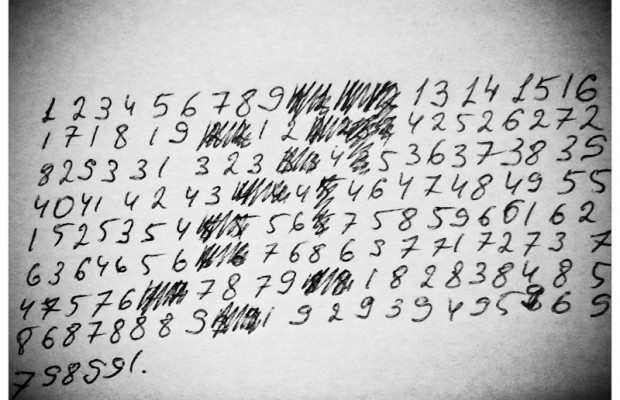 1 2 3 4 5 6 7 8 9 13 14 1516
1 7 1 8 1 9 1 2 4 2 5 2 6 2 7 2
8 2 9 3 3 1 3 2 3 4 5 3 6 3 7 3 8 3 9
4 0 4 1 4 2 4 3 4 4 6 4 7 4 8 4 9 5 5
1 5 2 5 3 5 4 5 6 7 5 8 5 9 6 0 1 6 2
6 3 6 4 6 5 6 7 6 8 6 9 7 7 1 7 2 7 3 7
4 7 5 7 6 7 8 7 9 1 8 2 8 3 8 4 8 5
8 6 8 7 8 8 8 9 1 9 2 9 3 9 4 9 5 9 6 9
7 9 8 9 9 1.